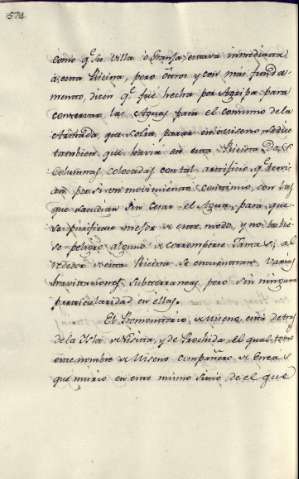 574
como qe. su villa o Granja estava inmediata
à esta Piscina, pero otros y con más funda-
mento, dicen qe. fue hecha por Agripa para
conservar las Aguas para el consumo de la
Armada que solia parar en
tambien que havia en esta Piscina Dos
Columnas, colocadas con tal artificio, qe.
an por si con movimiento continuo, con las
que sacudian sin cesar el Agua, para que
se purificase mejor de este modo, y no hubie-
se peligro alguno de corromperse jamas; al-
rededor de esta Piscina se encuentran varias
havitaciones subterraneas, pero sin ninguna
particularidad en ellas.
El Promontorio, de Miseno, está detras
de la Isla de Nisita, y de Prochida, el qual tomó
este nombre de Miseno compañero de Eneas
que murió en este mismo Sitio, de el que